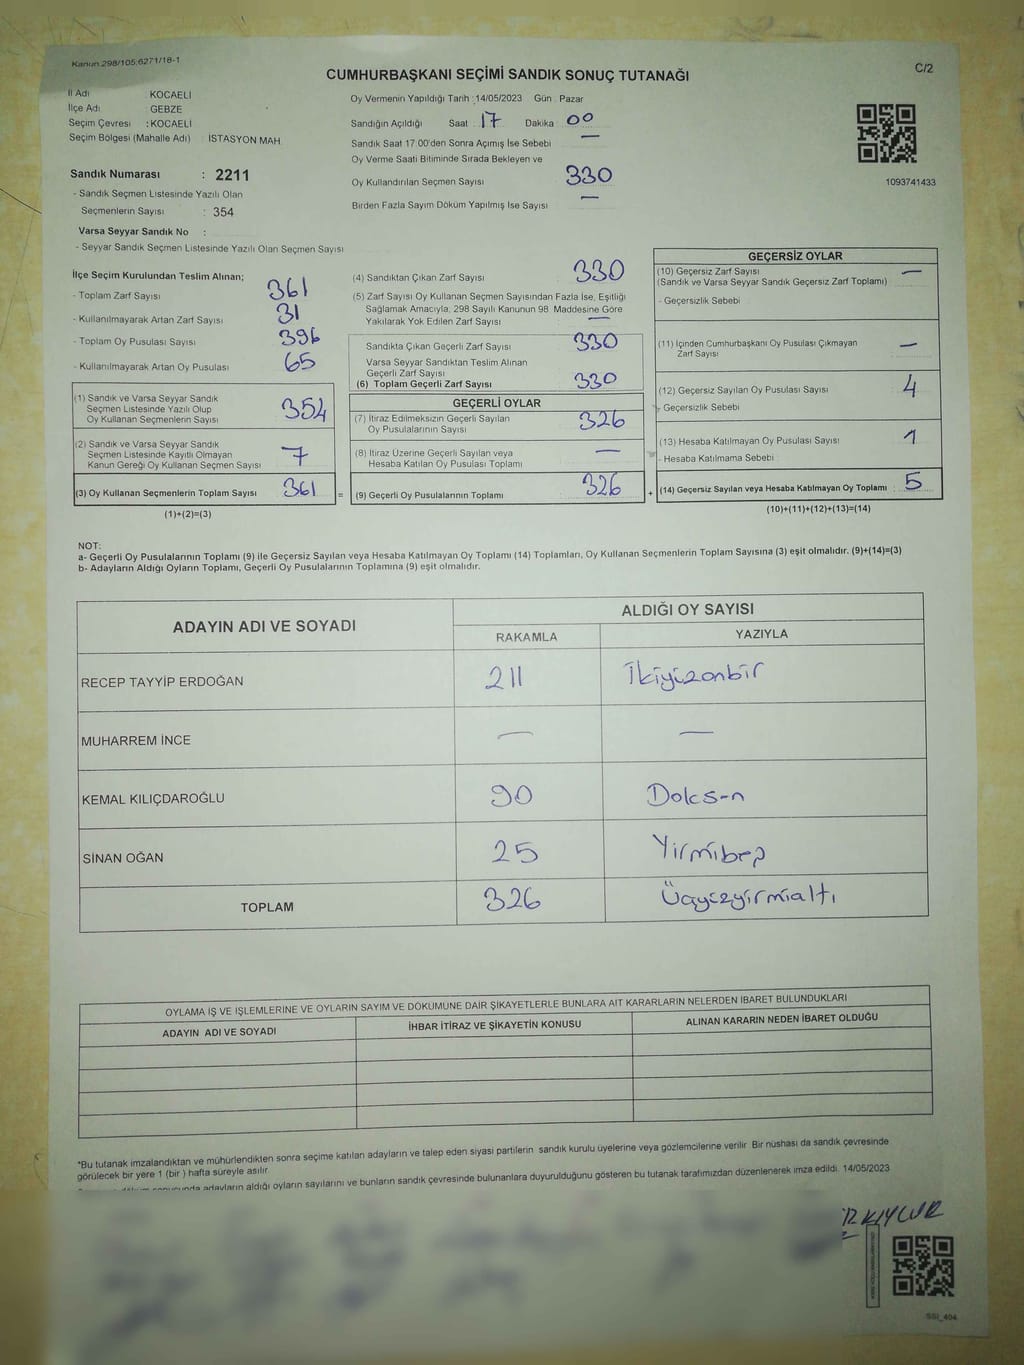 Kanun 298/105;6271/18-1
C/2
CUMHURBAŞKANI SEÇİMİ SANDIK SONUÇ TUTANAĞI
İl Adı KOCAELİ
İlçe Adı : GEBZE
Seçim Çevresi : KOCAELİ
Seçim Bölgesi (Mahalle Adı) : İSTASYON MAH.
Sandık Numarası : 2211
- Sandık Seçmen Listesinde Yazılı Olan
Seçmenlerin Sayısı : 354
Varsa Seyyar Sandık No :
- Seyyar Sandık Seçmen Listesinde Yazılı Olan Seçmen Sayısı
Oy Vermenin Yapıldığı Tarih : 14/05/2023 Gün : Pazar
Sandığın Açıldığı Saat : 17 Dakika : 00
Sandık Saat 17:00'den Sonra Açılmış İse Sebebi —
Oy Verme Saati Bitiminde Sırada Bekleyen ve
Oy Kullandırılan Seçmen Sayısı 330
Birden Fazla Sayım Döküm Yapılmış İse Sayısı —
1093741433
İlçe Seçim Kurulundan Teslim Alınan;
- Toplam Zarf Sayısı 361
- Kullanılmayarak Artan Zarf Sayısı 31
- Toplam Oy Pusulası Sayısı 396
- Kullanılmayarak Artan Oy Pusulası 65
(1) Sandık ve Varsa Seyyar Sandık
Seçmen Listesinde Yazılı Olup
Oy Kullanan Seçmenlerin Sayısı 354
(2) Sandık ve Varsa Seyyar Sandık
Seçmen Listesinde Kayıtlı Olmayan
Kanun Gereği Oy Kullanan Seçmen Sayısı 7
(3) Oy Kullanan Seçmenlerin Toplam Sayısı 361 =
(1)+(2)=(3)
(4) Sandıktan Çıkan Zarf Sayısı 330
(5) Zarf Sayısı Oy Kullanan Seçmen Sayısından Fazla İse, Eşitliği
Sağlamak Amacıyla, 298 Sayılı Kanunun 98. Maddesine Göre
Yakılarak Yok Edilen Zarf Sayısı —
Sandıkta Çıkan Geçerli Zarf Sayısı 330
Varsa Seyyar Sandıktan Teslim Alınan
Geçerli Zarf Sayısı
(6) Toplam Geçerli Zarf Sayısı 330
GEÇERLİ OYLAR
(7) İtiraz Edilmeksizin Geçerli Sayılan
Oy Pusulalarının Sayısı 326
(8) İtiraz Üzerine Geçerli Sayılan veya
Hesaba Katılan Oy Pusulası Toplamı —
(9) Geçerli Oy Pusulalarının Toplamı 326 +
GEÇERSİZ OYLAR
(10) Geçersiz Zarf Sayısı —
(Sandık ve Varsa Seyyar Sandık Geçersiz Zarf Toplamı)
- Geçersizlik Sebebi
(11) İçinden Cumhurbaşkanı Oy Pusulası Çıkmayan
Zarf Sayısı —
(12) Geçersiz Sayılan Oy Pusulası Sayısı 4
- Geçersizlik Sebebi
(13) Hesaba Katılmayan Oy Pusulası Sayısı 1
- Hesaba Katılmama Sebebi
(14) Geçersiz Sayılan veya Hesaba Katılmayan Oy Toplamı : 5
(10)+(11)+(12)+(13)=(14)
NOT:
a- Geçerli Oy Pusulalarının Toplamı (9) ile Geçersiz Sayılan veya Hesaba Katılmayan Oy Toplamı (14) Toplamları, Oy Kullanan Seçmenlerin Toplam Sayısına (3) eşit olmalıdır. (9)+(14)=(3)
b- Adayların Aldığı Oyların Toplamı, Geçerli Oy Pusulalarının Toplamına (9) eşit olmalıdır.
ADAYIN ADI VE SOYADI ALDIĞI OY SAYISI
RAKAMLA YAZIYLA
RECEP TAYYİP ERDOĞAN 211 İkiyüzonbir
MUHARREM İNCE — —
KEMAL KILIÇDAROĞLU 90 Doksan
SİNAN OĞAN 25 Yirmibeş
TOPLAM 326 Üçyüzyirmialtı
OYLAMA İŞ VE İŞLEMLERİNE VE OYLARIN SAYIM VE DÖKÜMÜNE DAİR ŞİKAYETLERLE BUNLARA AİT KARARLARIN NELERDEN İBARET BULUNDUKLARI
ADAYIN ADI VE SOYADI İHBAR İTİRAZ VE ŞİKAYETİN KONUSU ALINAN KARARIN NEDEN İBARET OLDUĞU
*Bu tutanak imzalandıktan ve mühürlendikten sonra seçime katılan adayların ve talep eden siyasi partilerin sandık kurulu üyelerine veya gözlemcilerine verilir. Bir nüshası da sandık çevresinde
görülecek bir yere 1 (bir ) hafta süreyle asılır.
adayların aldığı oyların sayılarını ve bunların sandık çevresinde bulunanlara duyurulduğunu gösteren bu tutanak tarafımızdan düzenlenerek imza edildi. 14/05/2023
SSI_404